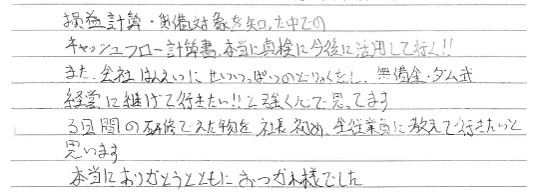 損益計算・貸借対象を知った中での
キャッシュフロー計算書、本当に真検に今後に活用して行く!!
また、会社はんえいに せいいっぱいのどりょくをし、無借金・ダム式
経営に継げて行きたい!!と強く心で思ってます
3日間の研修でえた物を社長初め、全従業員に教えて行きたいと
思います
本当にありがとうとともにおつかれ様でした